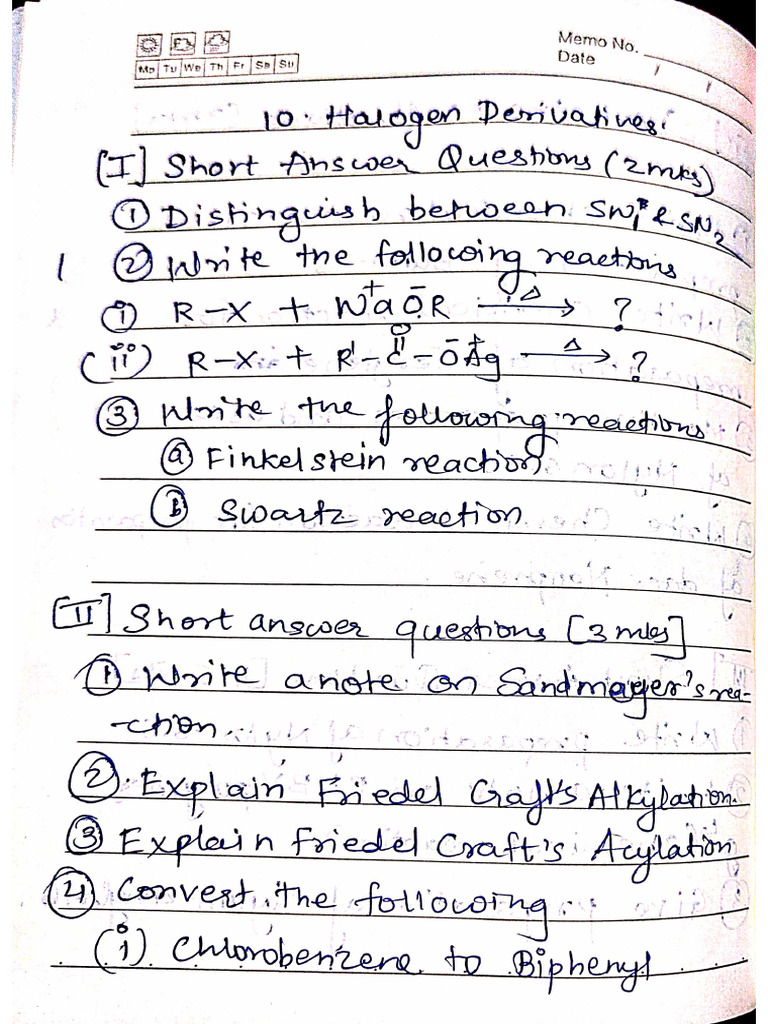 Memo No.
Mo Tu We Th Fr Sa Su
Date / /
10. Halogen Derivatives.
[I] Short Answer Questions (2mks)
① Distinguish between SN1 & SN2
1 ② Write the following reactions.
(i) R-X + Na⁺O⁻R —Δ→ ?
O
||
(ii) R-X + R'-C-O⁻Ag⁺ —Δ→ ?
③ Write the following reactions
ⓐ Finkelstein reaction
ⓑ Swartz reaction
[II] Short answer questions [3 mks]
① Write a note on Sandmayer's rea-
-ction.
② Explain Friedel Craft's Alkylation.
③ Explain Friedel Craft's Acylation
④ Convert the following
(i) Chlorobenzene to Biphenyl